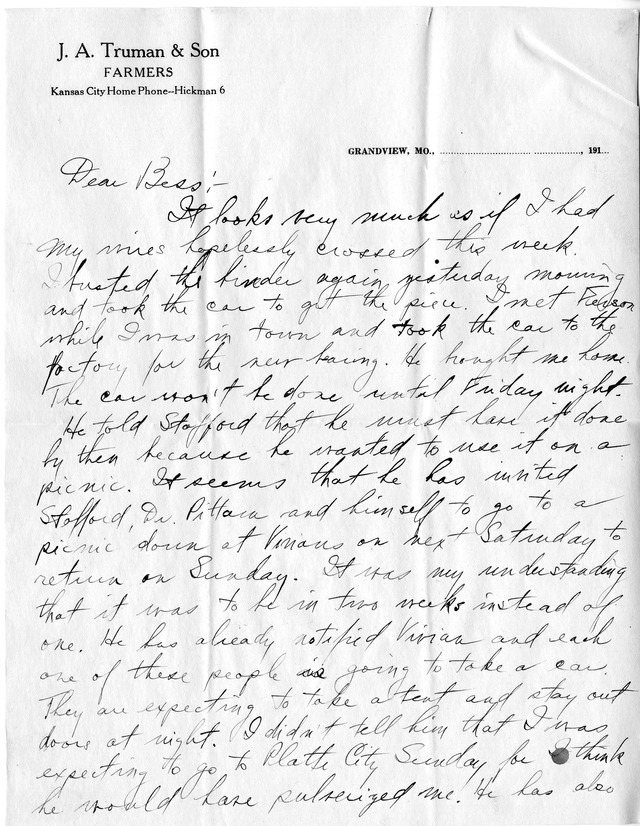 J. A. Truman & Son
FARMERS
Kansas City Home Phone--Hickman 6
GRANDVIEW, MO., ........................................, 191...
Dear Bess:-
It looks very much as if I had
my wires hopelessly crossed this week.
I busted the binder again yesterday morning
and took the car to get the piece. I met Ferson
while I was in town and took the car to the
factory for the new bearing. He brought me home.
The car won't be done until Friday night.
He told Stafford that he must have it done
by then because he wanted to use it on a
picnic. It seems that he has invited
Stafford, Dr. Pittam and himself to go to a
picnic down at Vivians on next Saturday to
return on Sunday. It was my understanding
that it was to be in two weeks instead of
one. He has already notified Vivian and each
one of these people is going to take a car.
They are expecting to take a tent and stay out
doors at night. I didn't tell him that I was
expecting to go to Platte City Sunday for I think
he would have pulverized me. He has also